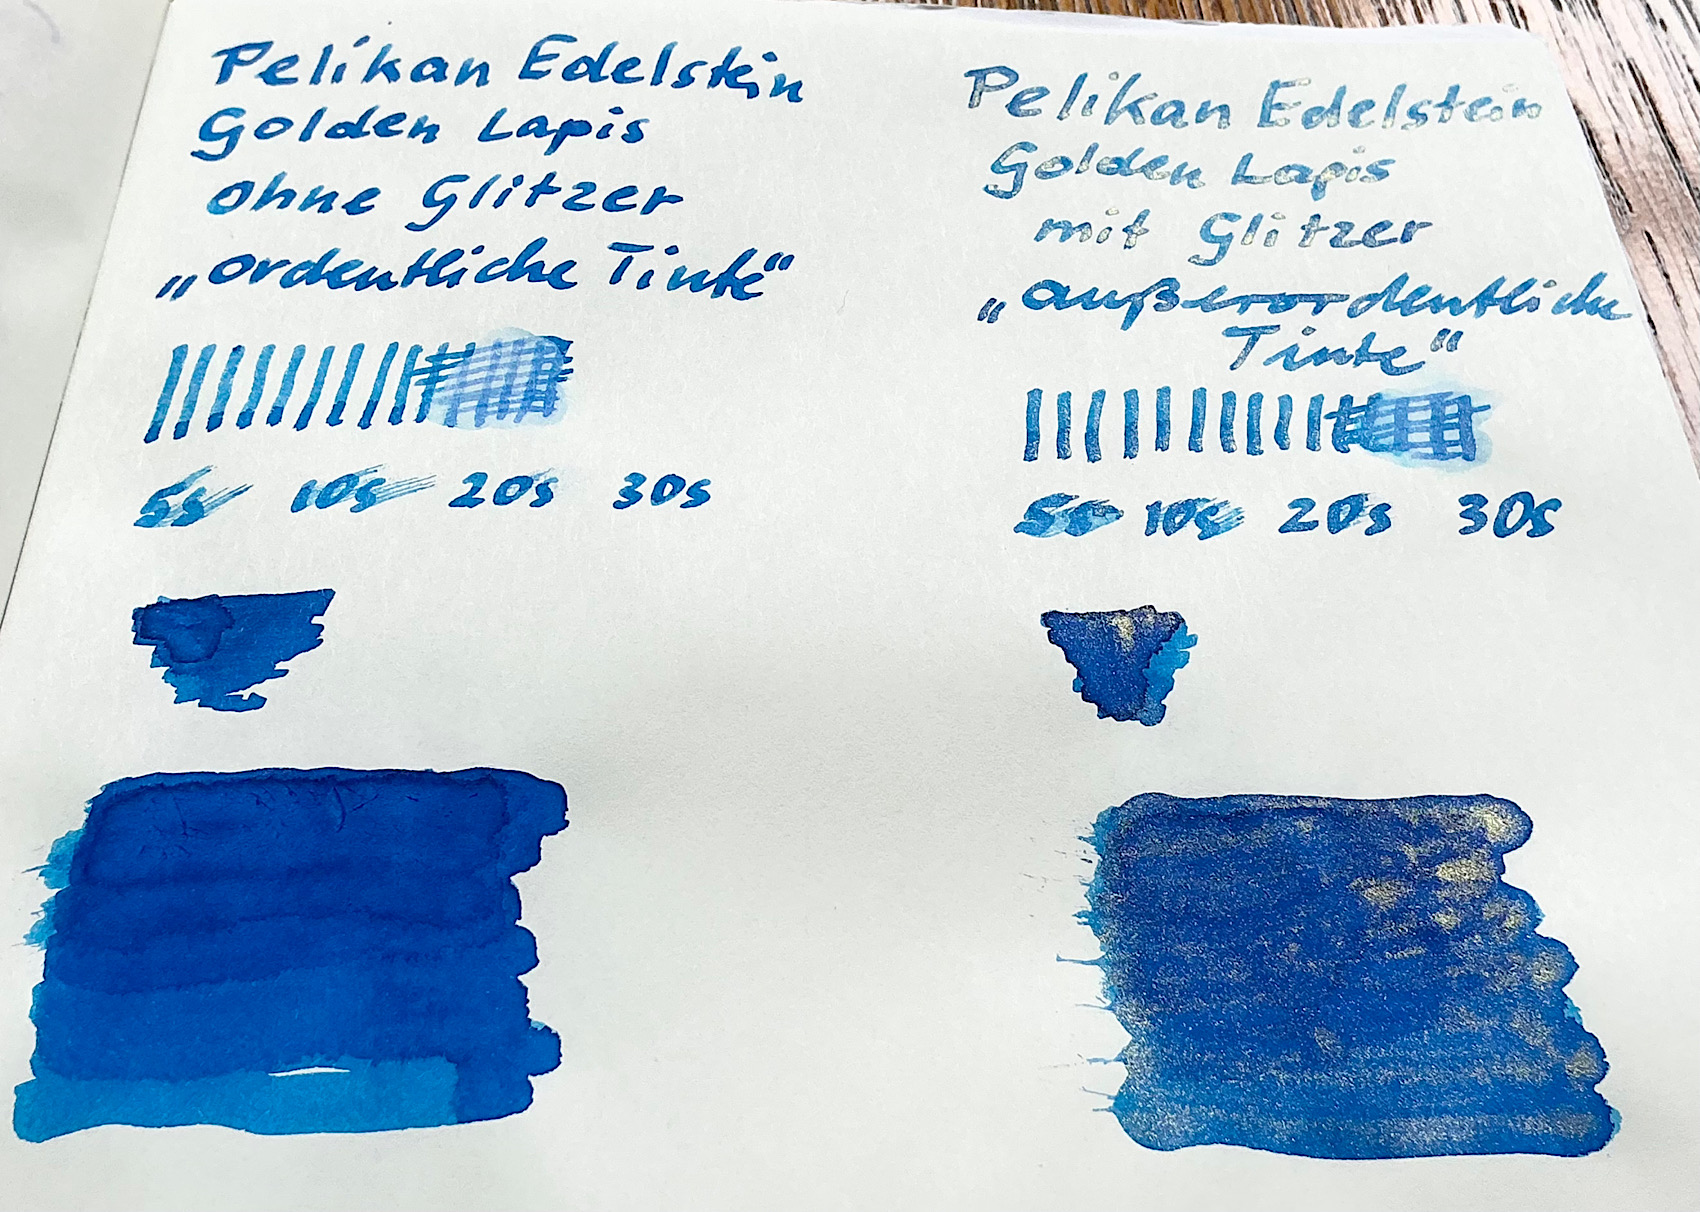 Pelikan Edelstein
Golden Lapis
ohne Glitzer
„ordentliche Tinte“
5s 10s 20s 30s
Pelikan Edelstein
Golden Lapis
mit Glitzer
„außerordentliche
Tinte“
5s 10s 20s 30s